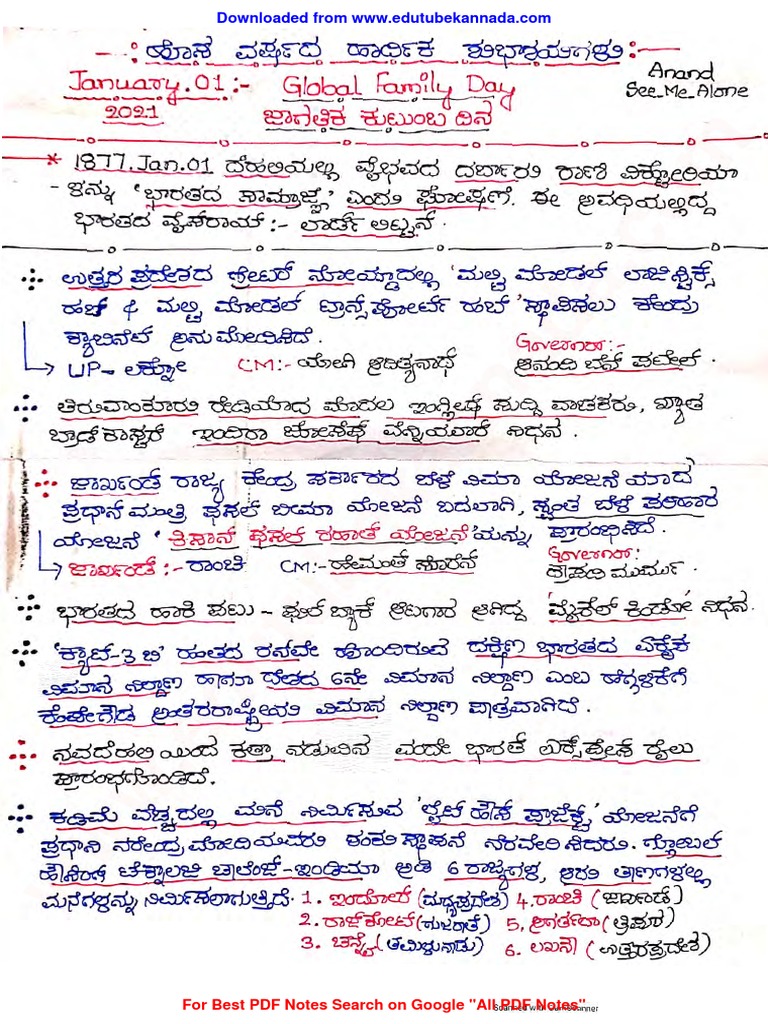 Downloaded from www.edutubekannada.com
-: ಹೊಸ ವರ್ಷದ ಹಾರ್ದಿಕ ಶುಭಾಶಯಗಳು :-
Anand
See_Me_Alone
January.01:- Global Family Day
2021 ಜಾಗತಿಕ ಕುಟುಂಬ ದಿನ
* 1877.Jan.01 ದೆಹಲಿಯಲ್ಲಿ ವೈಭವದ ದರ್ಬಾರು ರಾಣಿ ವಿಕ್ಟೋರಿಯಾ
- ಳನ್ನು 'ಭಾರತದ ಸಾಮ್ರಾಜ್ಞಿ' ಎಂದು ಘೋಷಣೆ. ಈ ಅವಧಿಯಲ್ಲಿದ್ದ
ಭಾರತದ ವೈಸ್‌ರಾಯ್ :- ಲಾರ್ಡ್ ಲಿಟ್ಟನ್.
ಉತ್ತರ ಪ್ರದೇಶದ ಗ್ರೇಟರ್ ನೋಯ್ಡಾದಲ್ಲಿ 'ಮಲ್ಟಿ ಮೋಡಲ್ ಲಾಜಿಸ್ಟಿಕ್ಸ್
ಹಬ್ & ಮಲ್ಟಿ ಮೋಡಲ್ ಟ್ರಾನ್ಸ್‌ಪೋರ್ಟ್ ಹಬ್' ಸ್ಥಾಪಿಸಲು ಕೇಂದ್ರ
ಕ್ಯಾಬಿನೆಟ್ ಅನುಮೋದಿಸಿದೆ.
Governor:-
UP- ಲಕ್ನೋ CM:- ಯೋಗಿ ಆದಿತ್ಯನಾಥ್ ಆನಂದಿ ಬೆನ್ ಪಟೇಲ್.
ತಿರುವಾಂಕೂರು ರೇಡಿಯೋದ ಮೊದಲ ಇಂಗ್ಲೀಷ್ ಸುದ್ದಿ ವಾಚಕರು, ಖ್ಯಾತ
ಬ್ರಾಡ್‌ಕಾಸ್ಟರ್ ಇಂದಿರಾ ಜೋಸೆಫ್ ವೆನ್ನಿಯೂರ್ ನಿಧನ.
ಜಾರ್ಖಂಡ್ ರಾಜ್ಯ ಕೇಂದ್ರ ಸರ್ಕಾರದ ಬೆಳೆ ವಿಮಾ ಯೋಜನೆಯಾದ
ಪ್ರಧಾನ್ ಮಂತ್ರಿ ಫಸಲ್ ಬೀಮಾ ಯೋಜನೆ ಬದಲಾಗಿ, ಸ್ವಂತ ಬೆಳೆ ಪರಿಹಾರ
ಯೋಜನೆ 'ಕಿಸಾನ್ ಫಸಲ್ ರಹಾತ್ ಯೋಜನೆ' ಯನ್ನು ಪ್ರಾರಂಭಿಸಿದೆ.
Governor:
ಜಾರ್ಖಂಡ್ :- ರಾಂಚಿ CM:- ಹೇಮಂತ್ ಸೊರೆನ್ ದ್ರೌಪದಿ ಮುರ್ಮು.
ಭಾರತದ ಹಾಕಿ ಪಟು - ಫುಲ್ ಬ್ಯಾಕ್ ಆಟಗಾರ ಆಗಿದ್ದ 'ಮೈಕೆಲ್ ಕಿಂಡೋ' ನಿಧನ.
'ಕ್ಯಾಟ್-3 ಬಿ' ಹಂತದ ರನ್‌ವೇ ಹೊಂದಿರುವ ದಕ್ಷಿಣ ಭಾರತದ ಏಕೈಕ
ವಿಮಾನ ನಿಲ್ದಾಣ ಹಾಗೂ ದೇಶದ 6ನೇ ವಿಮಾನ ನಿಲ್ದಾಣ ಎಂಬ ಹೆಗ್ಗಳಿಕೆಗೆ
ಕೆಂಪೇಗೌಡ ಅಂತರರಾಷ್ಟ್ರೀಯ ವಿಮಾನ ನಿಲ್ದಾಣ ಪಾತ್ರವಾಗಿದೆ.
ನವದೆಹಲಿಯಿಂದ ಕತ್ರಾ ನಡುವಿನ ವಂದೇ ಭಾರತ್ ಎಕ್ಸ್‌ಪ್ರೆಸ್ ರೈಲು
ಪ್ರಾರಂಭಗೊಂಡಿದೆ.
ಕಡಿಮೆ ವೆಚ್ಚದಲ್ಲಿ ಮನೆ ನಿರ್ಮಿಸುವ 'ಲೈಟ್ ಹೌಸ್ ಪ್ರಾಜೆಕ್ಟ್' ಯೋಜನೆಗೆ
ಪ್ರಧಾನಿ ನರೇಂದ್ರ ಮೋದಿಯವರು ಶಂಕುಸ್ಥಾಪನೆ ನೆರವೇರಿಸಿದರು. ಗ್ಲೋಬಲ್
ಹೌಸಿಂಗ್ ಟೆಕ್ನಾಲಜಿ ಚಾಲೆಂಜ್-ಇಂಡಿಯಾ ಅಡಿ 6 ರಾಜ್ಯಗಳ, ಆರು ತಾಣಗಳಲ್ಲಿ
ಮನೆಗಳನ್ನು ನಿರ್ಮಿಸಲಾಗುತ್ತಿದೆ. 1. ಇಂದೋರ್ (ಮಧ್ಯಪ್ರದೇಶ) 4. ರಾಂಚಿ (ಜಾರ್ಖಂಡ್)
2. ರಾಜ್‌ಕೋಟ್ (ಗುಜರಾತ್) 5. ಅಗರ್ತಲಾ (ತ್ರಿಪುರ)
3. ಚೆನ್ನೈ (ತಮಿಳುನಾಡು) 6. ಲಖನೌ (ಉತ್ತರಪ್ರದೇಶ)
For Best PDF Notes Search on Google "All PDF Notes"